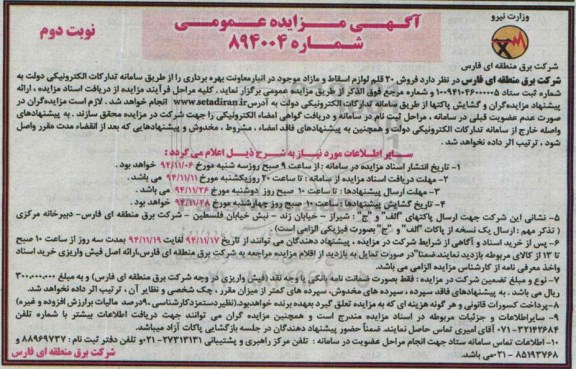 وزارت نیرو
آگهی مزایده عمومی
شماره ۸۹۴۰۰۴
نوبت دوم
شرکت برق منطقه ای فارس
شرکت برق منطقه ای فارس در نظر دارد فروش ۲۰ قلم لوازم اسقاط و مازاد موجود در انبارمعاونت بهره برداری را از طریق سامانه تدارکات الکترونیکی دولت به
شماره ثبت ستاد ۱۰۰۹۴۱۰۴۶۰۰۰۰۰۵ و شماره مرجع فوق الذکر از طریق مزایده عمومی برگزار نماید. کلیه مراحل فرآیند مزایده از دریافت اسناد مزایده ، ارائه
پیشنهاد مزایده‌گران و گشایش پاکتها از طریق سامانه تدارکات الکترونیکی دولت به آدرس www.setadiran.ir انجام خواهد شد. لازم است مزایده‌گران در
صورت عدم عضویت قبلی در سامانه ، مراحل ثبت نام در سامانه و دریافت گواهی امضاء الکترونیکی را جهت شرکت در مزایده محقق سازند. به پیشنهادهای
واصله خارج از سامانه تدارکات الکترونیکی دولت و همچنین به پیشنهادهای فاقد امضاء ، مشروط ، مخدوش و پیشنهادهایی که بعد از انقضاء مدت مقرر واصل
شود ، ترتیب اثر داده نخواهد شد.
سایر اطلاعات مورد نیاز به شرح ذیل اعلام می گردد :
۱- تاریخ انتشار اسناد مزایده در سامانه : از ساعت ۹ صبح روزسه شنبه مورخ ۹۴/۱۱/۰۶ خواهد بود .
۲- مهلت دریافت اسناد مزایده از سامانه : تا ساعت ۲۰ روزیکشنبه مورخ ۹۴/۱۱/۱۱ می باشد .
۳- مهلت ارسال پیشنهادها : تا ساعت ۱۰ صبح روز دوشنبه مورخ ۹۴/۱۱/۲۶ می باشد .
۴- تاریخ گشایش پیشنهادها : ساعت ۱۰ صبح روز چهارشنبه مورخ ۹۴/۱۱/۲۸ خواهد بود .
۵- نشانی این شرکت جهت ارسال پاکتهای "الف" و "ج" : شیراز - خیابان زند - نبش خیابان فلسطین - شرکت برق منطقه ای فارس- دبیرخانه مرکزی
( تذکر مهم : ارسال یک نسخه از پاکات "الف" و "ج" بصورت فیزیکی الزامی است)
۶- پس از خرید اسناد و آگاهی از شرایط شرکت در مزایده ، پیشنهاد دهندگان می توانند از تاریخ ۹۴/۱۱/۱۷ لغایت ۹۴/۱۱/۱۹ بمدت سه روز از ساعت ۱۰ صبح
تا ۱۳ از کالای مربوطه بازدید نمایند.ضمنا"در صورت تمایل به بازدید از اقلام مزایده مراجعه به شرکت برق منطقه ای فارس،ارائه اصل فیش واریزی خرید اسناد
واخذ معرفی نامه از کارشناس مزایده الزامی می باشد.
۷- نوع و مبلغ تضمین شرکت در مزایده : فقط بصورت ضمانت نامه بانکی یا وجه نقد (فیش واریزی در وجه شرکت برق منطقه ای فارس) و به مبلغ ۳۰۰،۰۰۰،۰۰۰
ریال می باشد . به پیشنهادهای فاقد سپرده ، سپرده های مخدوش، سپرده های کمتر از میزان مقرر ، چک شخصی و نظایر آن ، ترتیب اثر داده نخواهد شد.
۸-پرداخت کسورات قانونی و هر گونه هزینه ای که به مزایده تعلق گیرد بعهده برنده خواهدبود.(نظیردستمزدکارشناسی ،۹درصد مالیات برارزش افزوده و غیره)
۹- سایراطلاعات و جزئیات مربوطه در اسناد مزایده مندرج است و همچنین مزایده گران می توانند جهت دریافت اطلاعات بیشتر با شماره تلفن
۰۷۱-۳۲۱۴۲۶۸۴ آقای امیری تماس حاصل نمایند. ضمناً حضور پیشنهاد دهندگان در جلسه بازگشایی پاکات آزاد میباشد.
۱۰- اطلاعات تماس سامانه ستاد جهت انجام مراحل عضویت در سامانه : تلفن مرکز راهبری و پشتیبانی ۰۲۱-۲۷۳۱۳۱۳۱و تلفن دفتر ثبت نام : ۸۸۹۶۹۷۳۷ و
۰۲۱-۸۵۱۹۳۷۶۸می باشد.
شرکت برق منطقه ای فارس